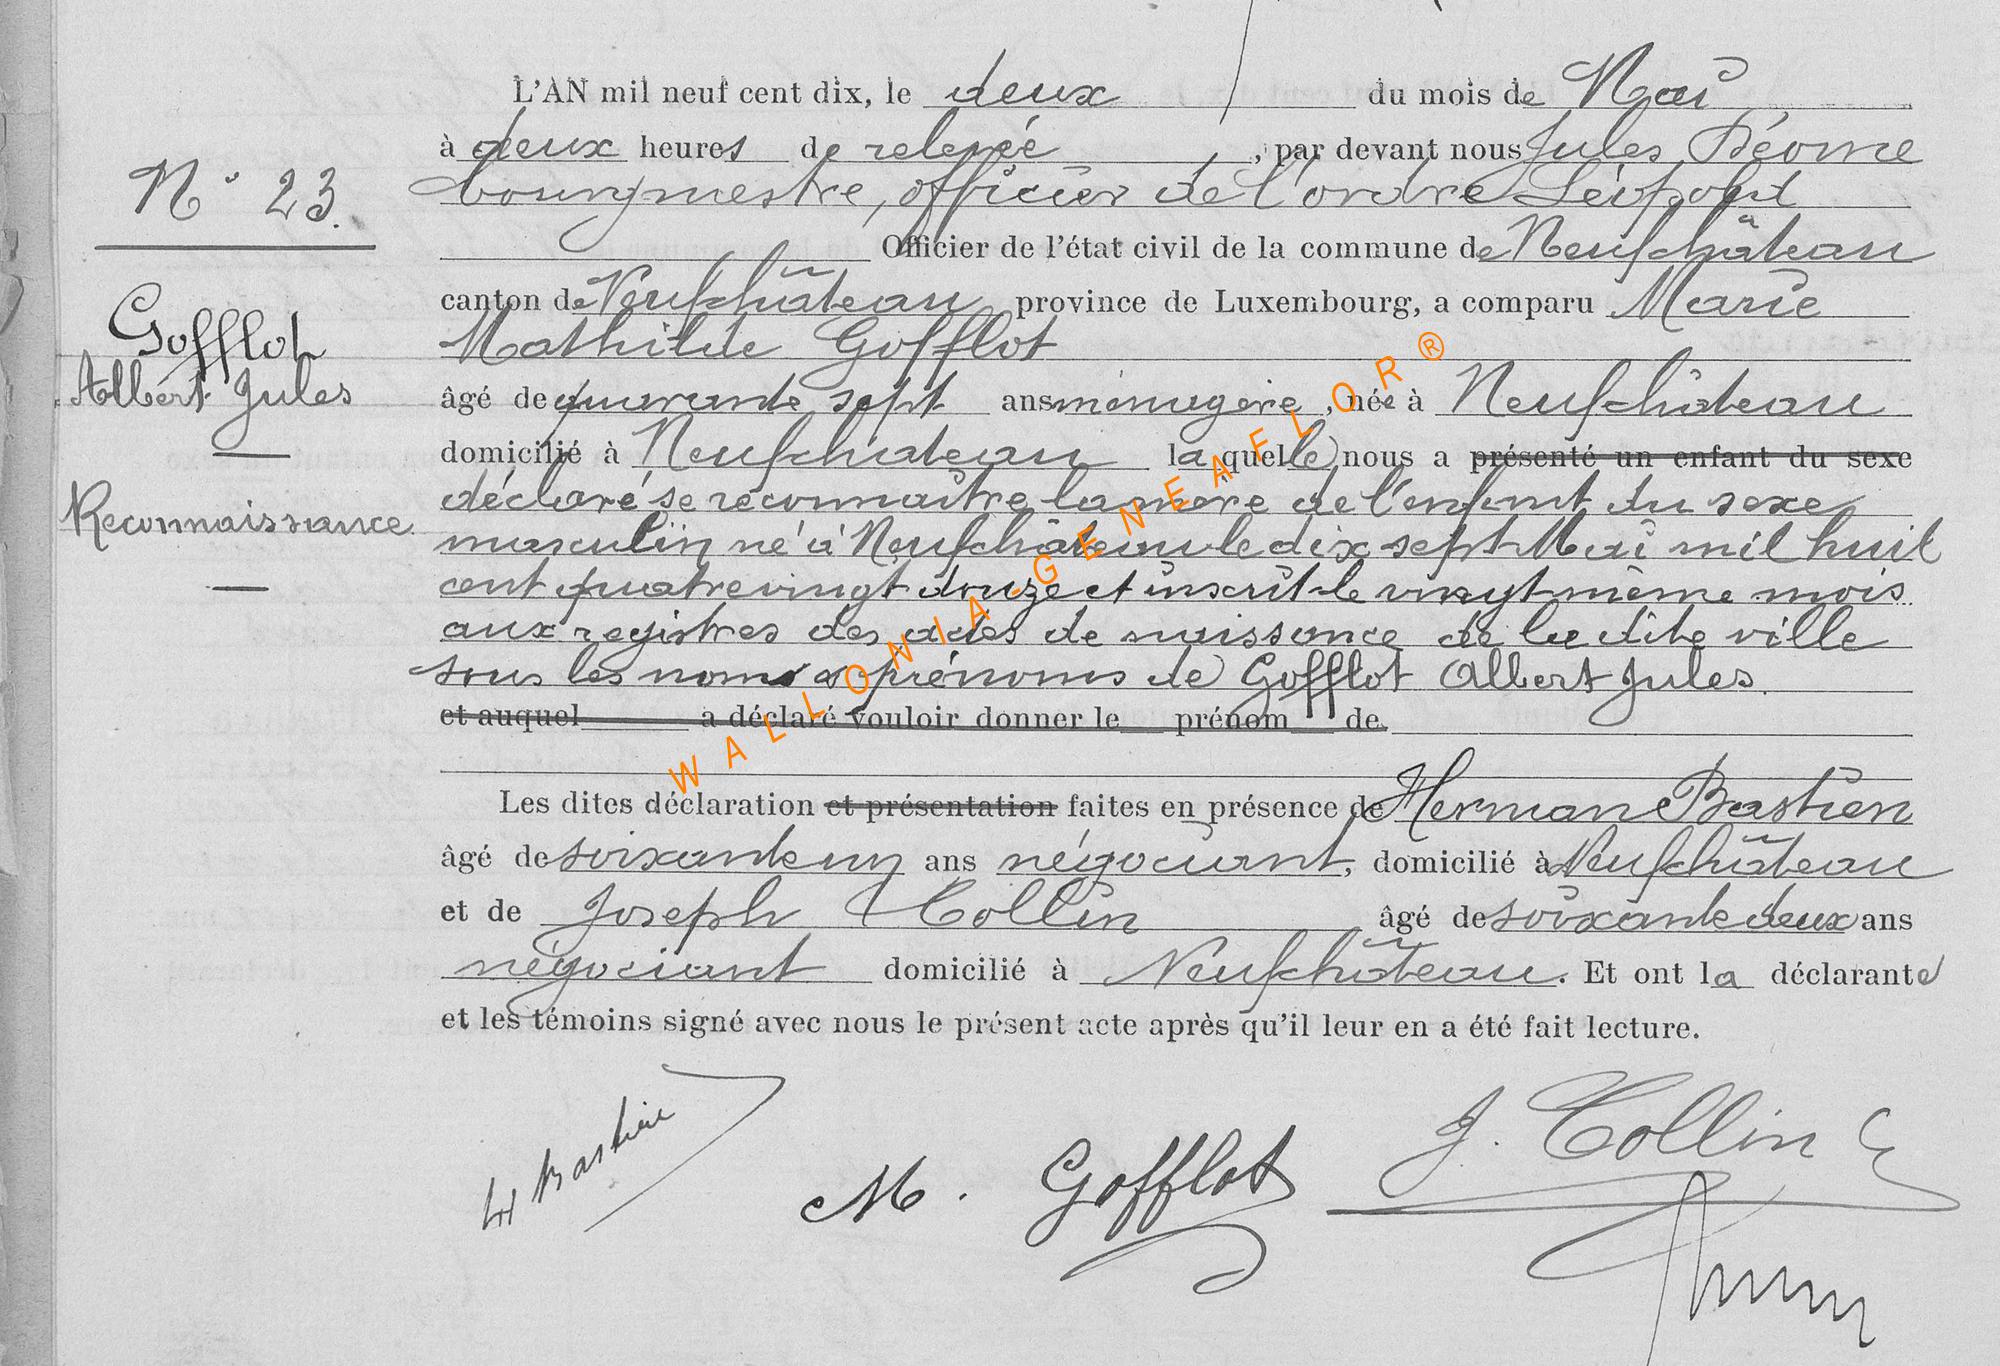 L'AN mil neuf cent dix, le deux du mois de Mai
à deux heures de relevée, par devant nous Jules Déome
bourgmestre, officier de l'ordre Léopold
Officier de l'état civil de la commune de Neufchâteau
canton de Neufchâteau province de Luxembourg, a comparu Marie
Mathilde Gofflot
âgé de quarante sept ans ménagère, née à Neufchâteau
domicilié à Neufchateau laquelle nous a présenté un enfant du sexe
déclaré se reconnaître la mère de l'enfant du sexe
masculin né à Neufchâteau le dix sept Mai mil huit
cent quatre vingt douze et inscrit le vingt même mois
aux registres des actes de naissance de la dite ville
sous les noms & prénoms de Gofflot Albert Jules
et auquel a déclaré vouloir donner le prénom de
Les dites déclaration et présentation faites en présence de Herman Bastien
âgé de soixante un ans négociant, domicilié à Neufchâteau
et de Joseph Collin âgé de soixante deux ans
négociant domicilié à Neufchâteau. Et ont la déclarante
et les témoins signé avec nous le présent acte après qu'il leur en a été fait lecture.
N° 23.
Gofflot
Albert Jules
Reconnaissance
H Bastien
M. Gofflot
J. Collin
WALLONIA-GENEAFLOR®